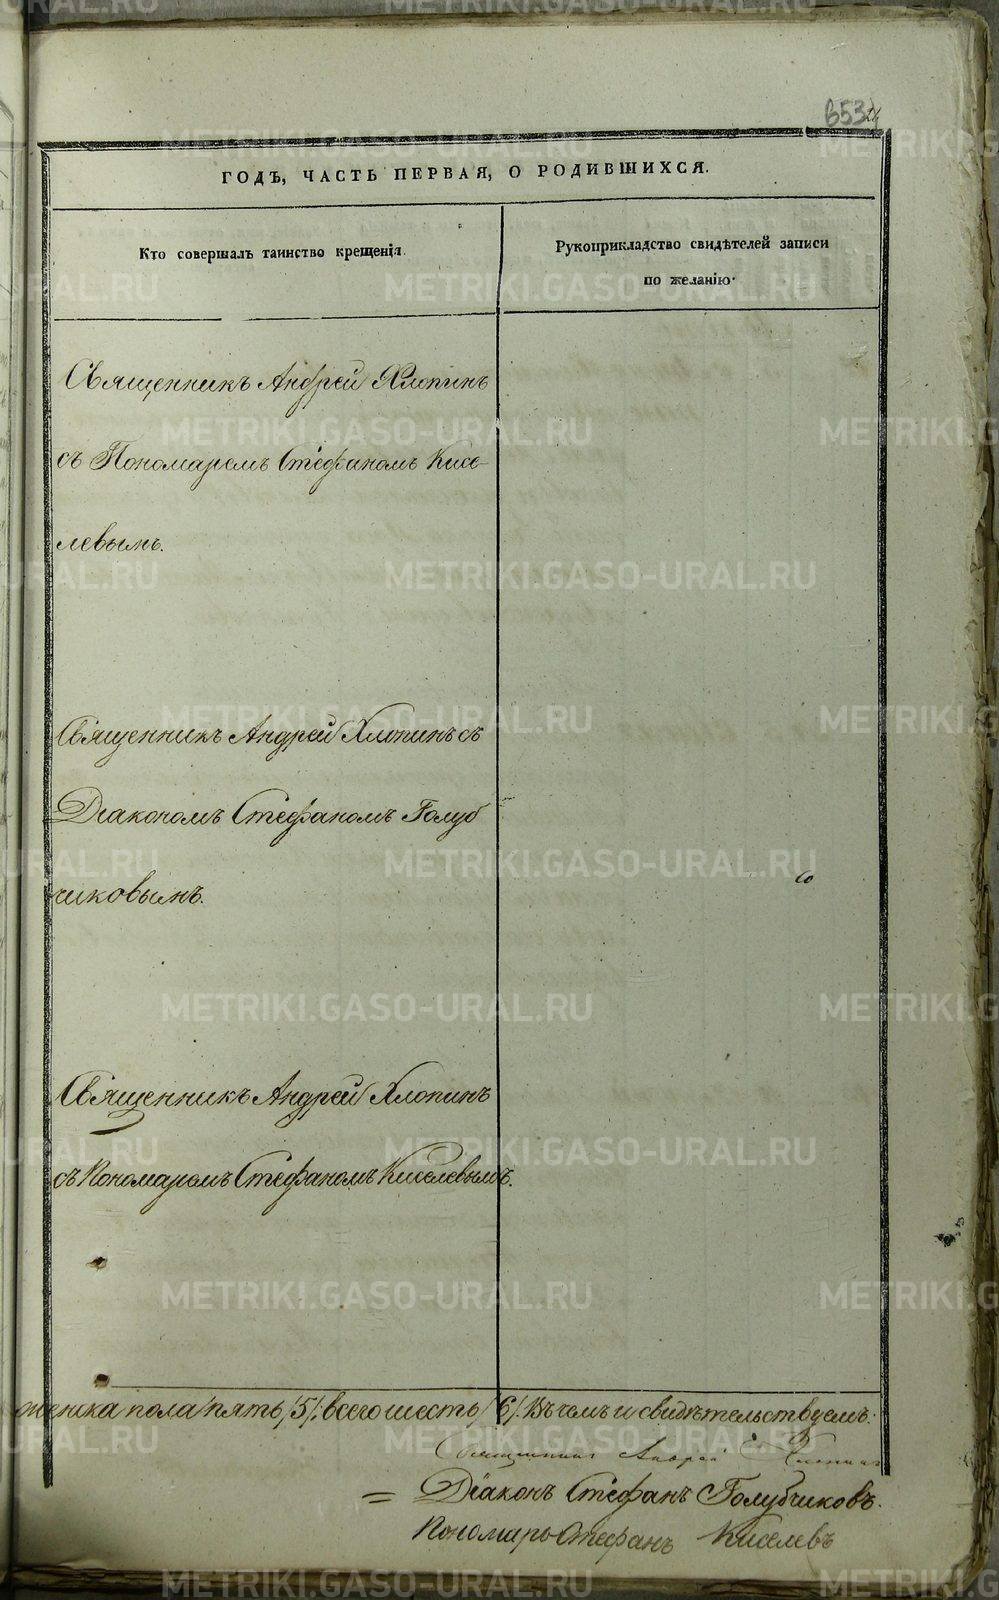 653
ГОДЪ, ЧАСТЬ ПЕРВАЯ, О РОДИВШИХСЯ.
Кто совершалъ таинство крещенія.
Рукоприкладство свидѣтелей записи
по желанію.
Священникъ Андрей Хлопинъ
съ Пономаремъ Стефаномъ Кисе-
левымъ.
Священникъ Андрей Хлопинъ съ
Діакономъ Стефаномъ Голуб
чиковымъ.
Священникъ Андрей Хлопинъ
съ Пономаремъ Стефаномъ Киселевымъ.
женска пола пять /5/. всего шесть /6/. Въ чемъ и свидѣтельствуемъ:
Священникъ Андрей Хлопинъ
= Діаконъ Стефанъ Голубчиковъ.
Пономарь Стефанъ Киселевъ
METRIKI.GASO-URAL.RU